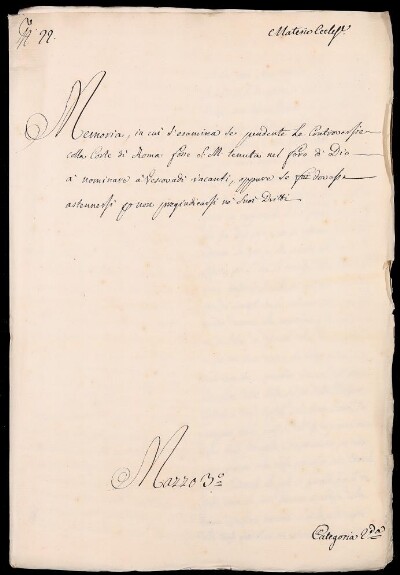 N. 22.
Materie Eccles.
Memoria, in cui s'esamina se pendente le Controversie
colla Corte di Roma fosse S. M. tenuta nel foro di Dio
a nominare a' Vescovadi vacanti, oppure se dovesse
astenersi per non pregiudicarsi ne' suoi Dritti
Mazzo 3.o
Categoria 2.da